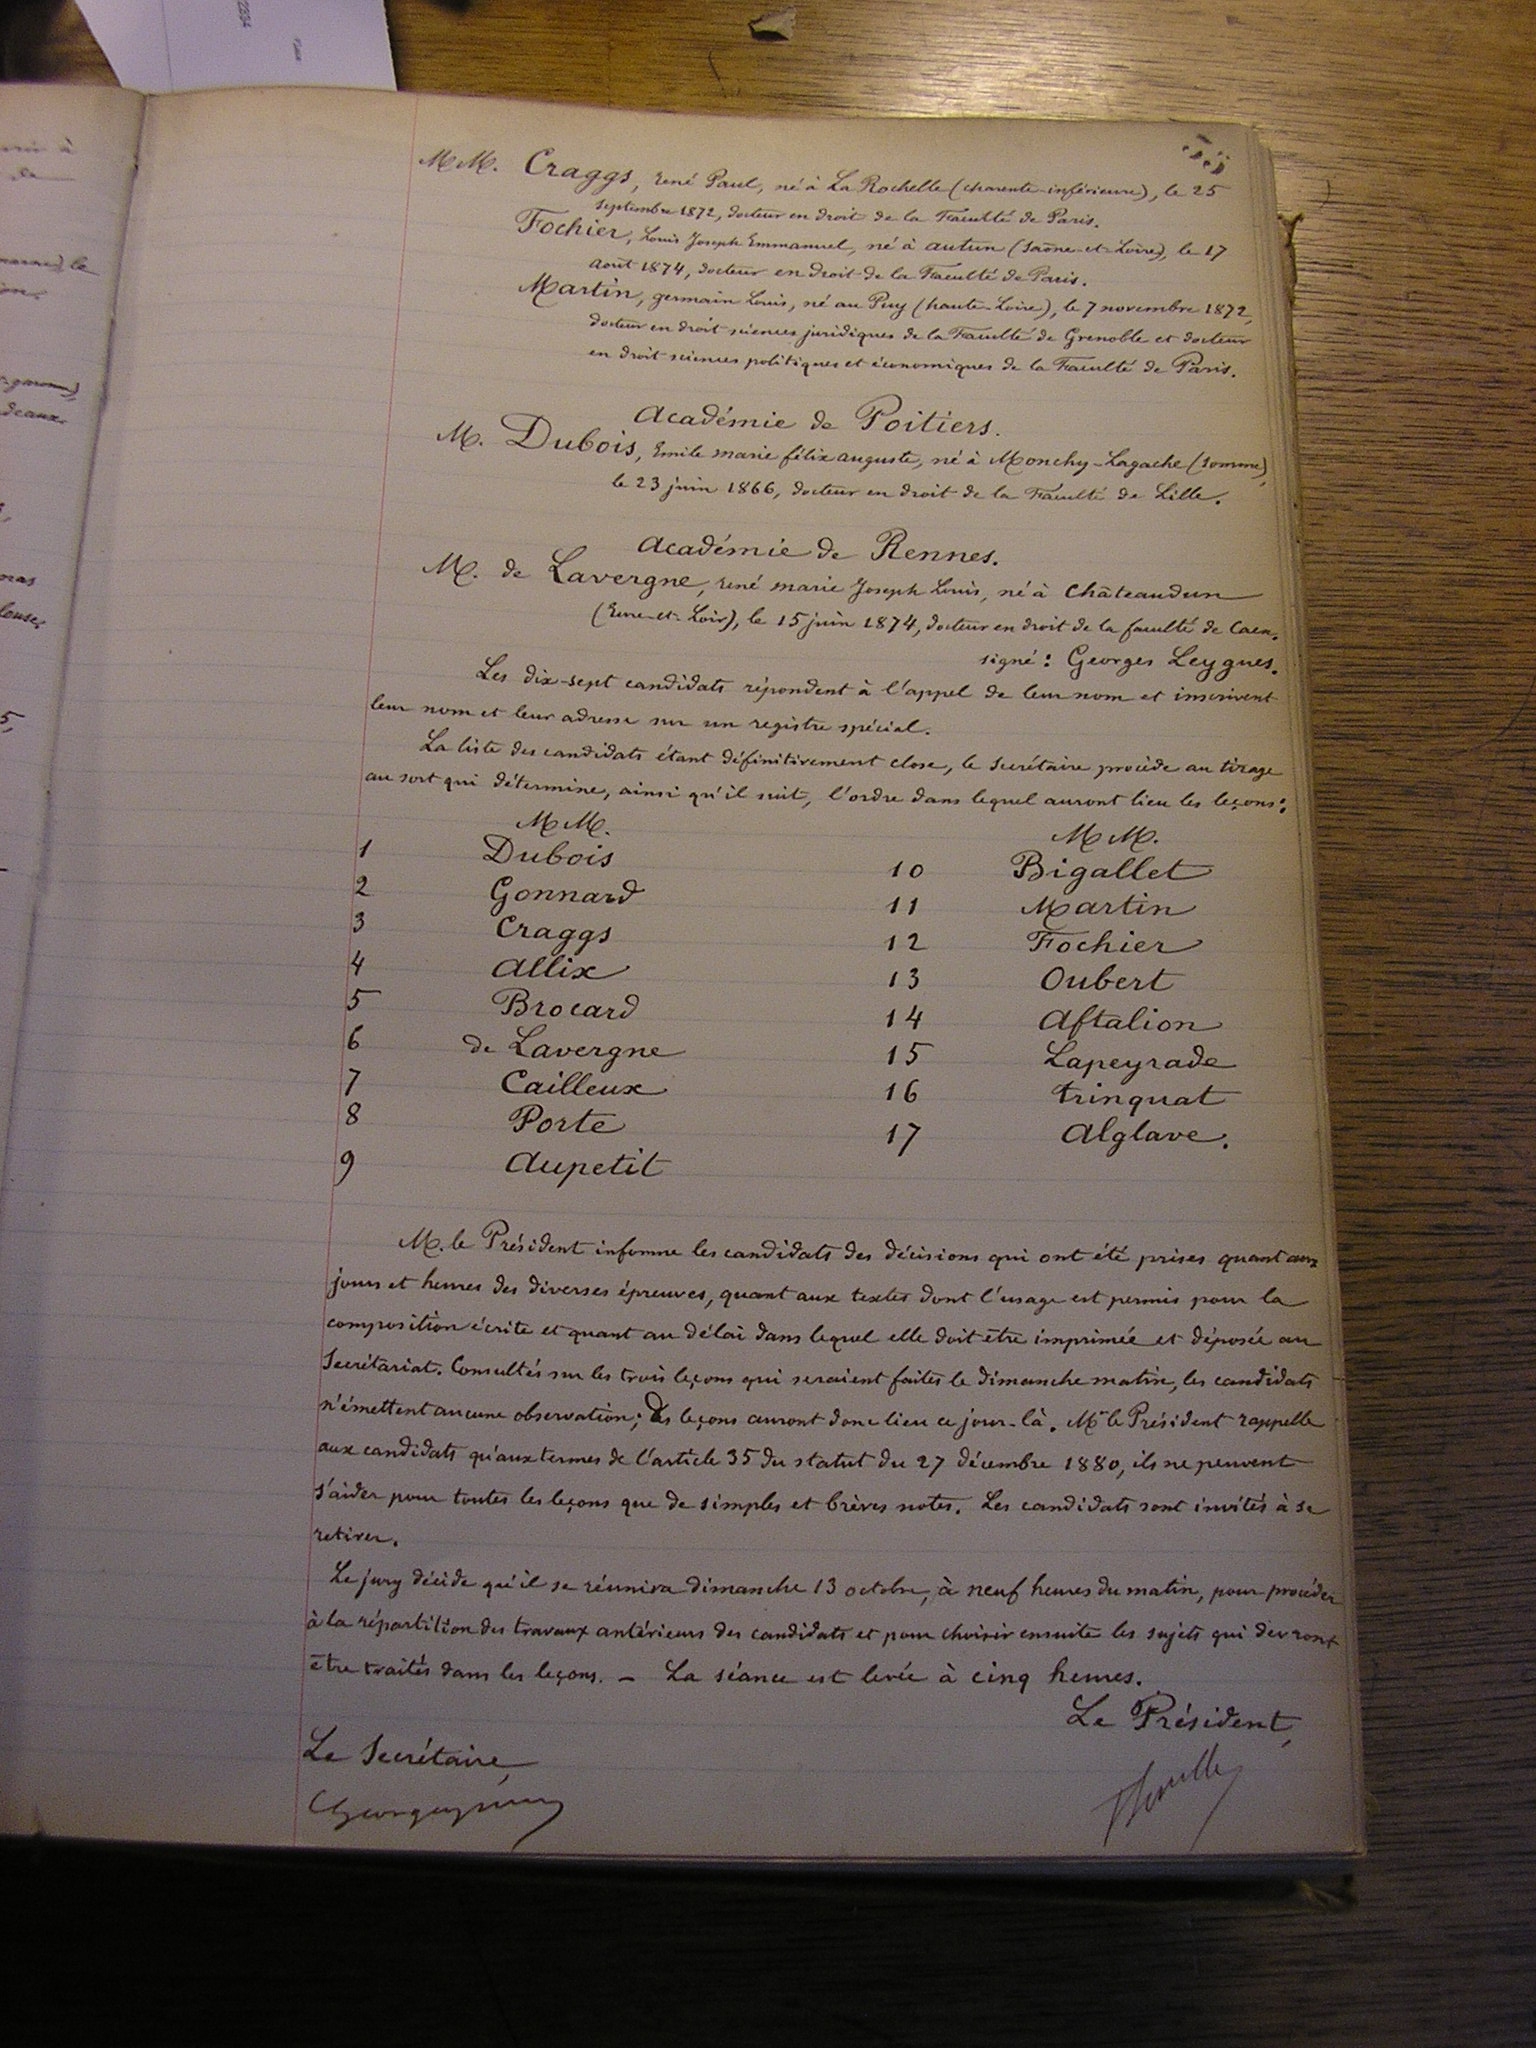 MM. Craggs, René Paul, né à La Rochelle (charente-inférieure), le 25
septembre 1872, docteur en droit de la Faculté de Paris.
Fochier, Louis Joseph Emmanuel, né à autun (Saône-et-Loire), le 17
août 1874, docteur en droit de la Faculté de Paris.
Martin, germain Louis, né au Puy (haute-Loire), le 7 novembre 1872,
docteur en droit sciences juridiques de la Faculté de Grenoble et docteur
en droit sciences politiques et économiques de la Faculté de Paris.
Académie de Poitiers.
M. Dubois, Emile marie félix auguste, né à Monchy-Lagache (Somme),
le 23 juin 1866, docteur en droit de la Faculté de Lille.
Académie de Rennes.
M. de Lavergne, rené marie Joseph Louis, né à Châteaudun
(Eure-et-Loir), le 15 juin 1874, docteur en droit de la faculté de Caen.
signé : Georges Leygues.
Les dix-sept candidats répondent à l'appel de leur nom et inscrivent
leur nom et leur adresse sur un registre spécial.
La liste des candidats étant définitivement close, le secrétaire procède au tirage
au sort qui détermine, ainsi qu'il suit, l'ordre dans lequel auront lieu les leçons :
MM.
1 Dubois
2 Gonnard
3 Craggs
4 Allix
5 Brocard
6 de Lavergne
7 Cailleux
8 Porte
9 Aupetit
MM.
10 Bigallet
11 Martin
12 Fochier
13 Oubert
14 Aftalion
15 Lapeyrade
16 trinquat
17 Alglave.
M. le Président informe les candidats des décisions qui ont été prises quant aux
jours et heures des diverses épreuves, quant aux textes dont l'usage est permis pour la
composition écrite et quant au délai dans lequel elle doit être imprimée et déposée au
Secrétariat. Consultés sur les trois leçons qui seraient faites le dimanche matin, les candidats
n'émettent aucune observation ; Des leçons auront donc lieu ce jour-là. Mr le Président rappelle
aux candidats qu'aux termes de l'article 35 du statut du 27 décembre 1880, ils ne peuvent
s'aider pour toutes les leçons que de simples et brèves notes. Les candidats sont invités à se
retirer.
Le jury décide qu'il se réunira dimanche 13 octobre, à neuf heures du matin, pour procéder
à la répartition des travaux antérieurs des candidats et pour choisir ensuite les sujets qui devront
être traités dans les leçons. — La séance est levée à cinq heures.
Le Président,
Le Secrétaire,